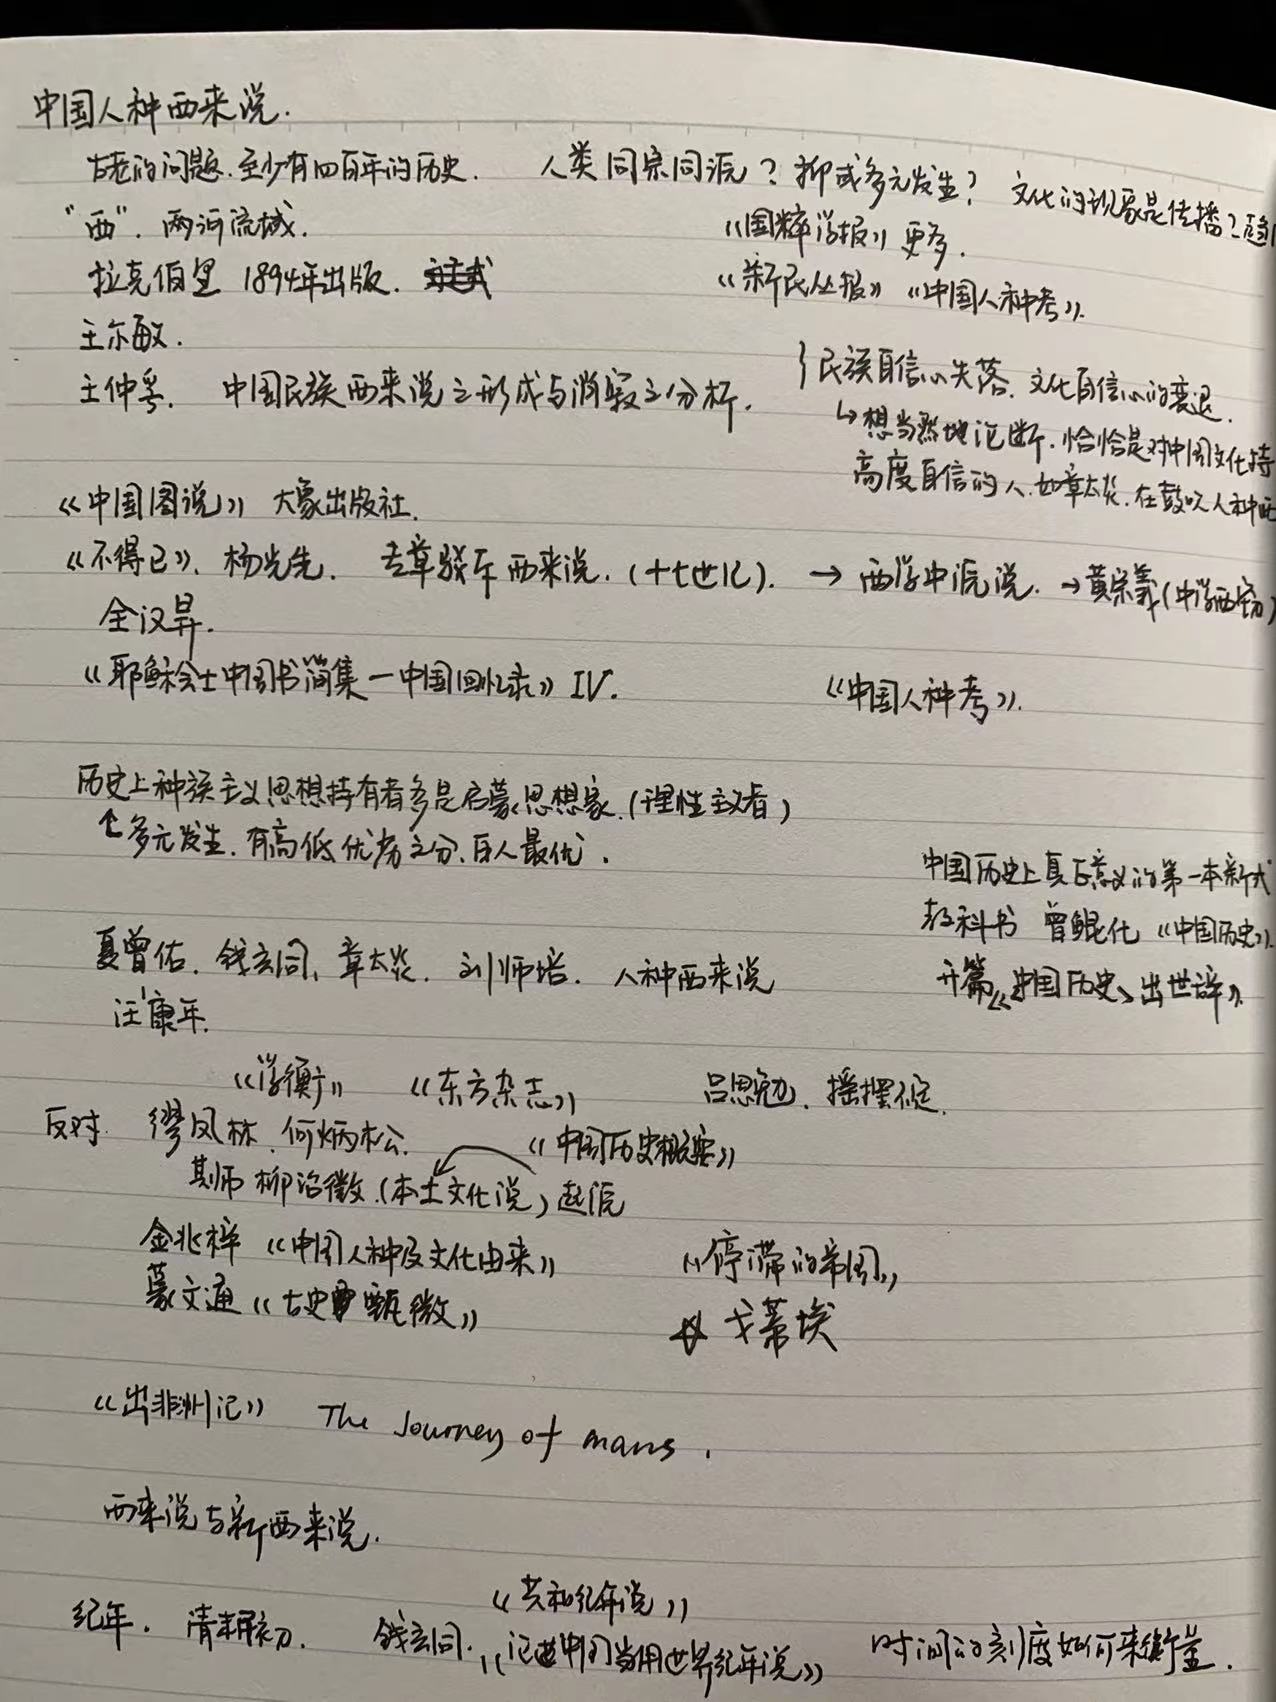 中国人种西来说.
古老的问题.至少有四百年的历史. 人类同宗同源？抑或多元发生？ 文化的现象是传播？
"西". 两河流域. 《国粹学报》更多.
拉克伯里 1894年出版. 《新民丛报》《中国人种考》.
王尔敏.
王仲孚. 中国民族西来说之形成与消寂之分析.
民族自信心失落. 文化自信心的衰退.
↳想当然地论断.恰恰是对中国文化持
高度自信的人.如章太炎.在鼓吹人种西
《中国图说》 大象出版社.
《不得已》. 杨光先. 专章驳斥西来说.(十七世纪). → 西学中源说. →黄宗羲(中学西窃)
全汉昇.
《耶稣会士中国书简集—中国回忆录》IV. 《中国人种考》.
历史上种族主义思想持有者多是启蒙思想家.(理性主义者)
↑多元发生.有高低优劣之分.白人最优.
中国历史上真正意义的第一本新式
教科书 曾鲲化《中国历史》.
开篇《中国历史出世辞》.
夏曾佑. 钱玄同. 章太炎. 刘师培. 人种西来说
汪康年.
《学衡》 《东方杂志》 吕思勉. 摇摆不定.
反对. 缪凤林. 何炳松. 《中国历史概要》
其师柳诒徵.(本土文化说) 起源
金兆梓《中国人种及文化由来》
蒙文通《古史甄微》
《停滞的帝国》
戈蒂埃
《出非洲记》 The Journey of mans.
西来说与新西来说.
《共和纪年说》
纪年. 清末民初. 钱玄同.《论中国当用世界纪年说》 时间的刻度如何来衡量.